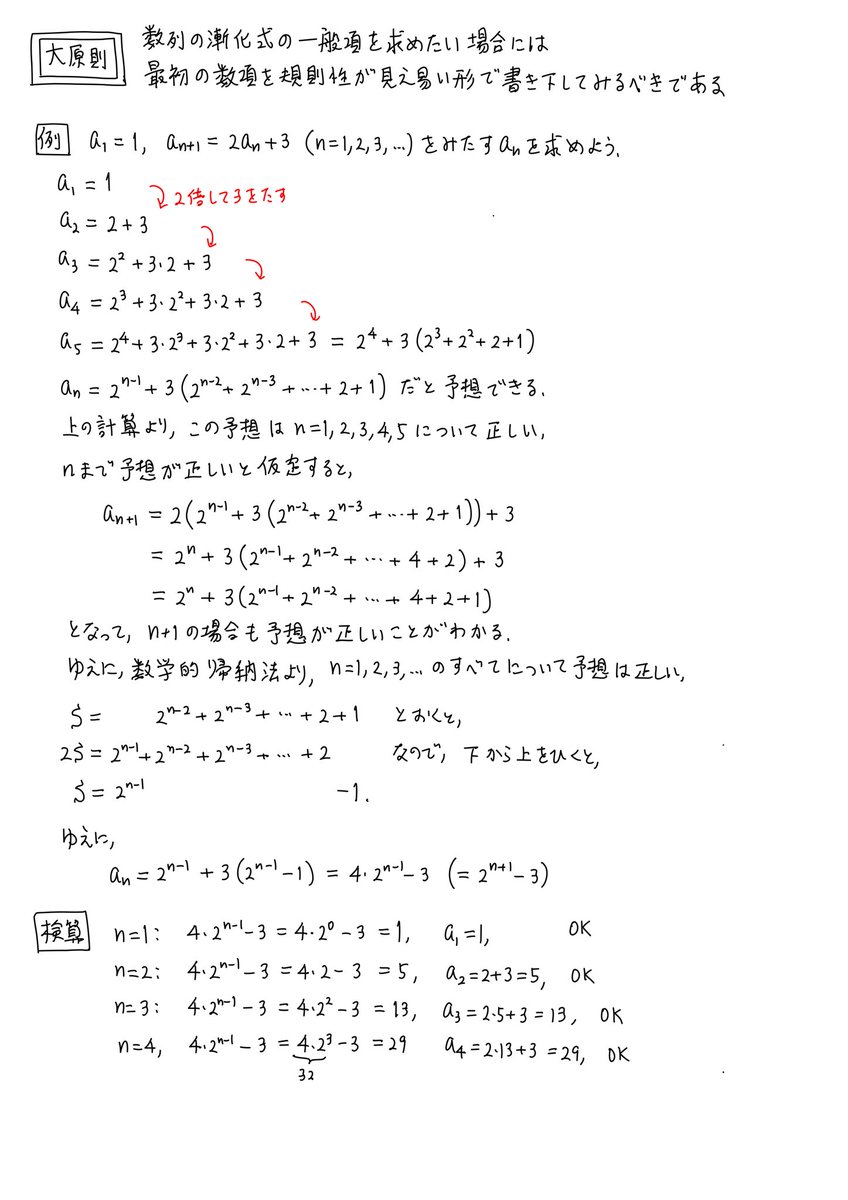 大原則 数列の漸化式の一般項を求めたい場合には
最初の数項を規則性が見え易い形で書き下してみるべきである
例 a₁=1, aₙ₊₁=2aₙ+3 (n=1,2,3,…)をみたすaₙを求めよう.
a₁ = 1
2倍して3をたす
a₂ = 2+3
a₃ = 2²+3·2+3
a₄ = 2³+3·2²+3·2+3
a₅ = 2⁴+3·2³+3·2²+3·2+3 = 2⁴+3(2³+2²+2+1)
aₙ = 2ⁿ⁻¹+3(2ⁿ⁻²+2ⁿ⁻³+…+2+1) だと予想できる.
上の計算より, この予想は n=1,2,3,4,5について正しい,
nまで予想が正しいと仮定すると,
aₙ₊₁ = 2(2ⁿ⁻¹+3(2ⁿ⁻²+2ⁿ⁻³+…+2+1))+3
= 2ⁿ+3(2ⁿ⁻¹+2ⁿ⁻²+…+4+2)+3
= 2ⁿ+3(2ⁿ⁻¹+2ⁿ⁻²+…+4+2+1)
となって, n+1の場合も予想が正しいことがわかる.
ゆえに, 数学的帰納法より, n=1,2,3,…のすべてについて予想は正しい,
S = 2ⁿ⁻²+2ⁿ⁻³+…+2+1 とおくと,
2S = 2ⁿ⁻¹+2ⁿ⁻²+2ⁿ⁻³+…+2 なので, 下から上をひくと,
S = 2ⁿ⁻¹ -1.
ゆえに,
aₙ = 2ⁿ⁻¹+3(2ⁿ⁻¹-1) = 4·2ⁿ⁻¹-3 (=2ⁿ⁺¹-3)
検算 n=1: 4·2ⁿ⁻¹-3 = 4·2⁰-3 = 1, a₁=1, OK
n=2: 4·2ⁿ⁻¹-3 = 4·2-3 = 5, a₂=2+3=5, OK
n=3: 4·2ⁿ⁻¹-3 = 4·2²-3 = 13, a₃=2·5+3=13, OK
n=4, 4·2ⁿ⁻¹-3 = 4·2³-3 = 29 a₄=2·13+3=29, OK
32